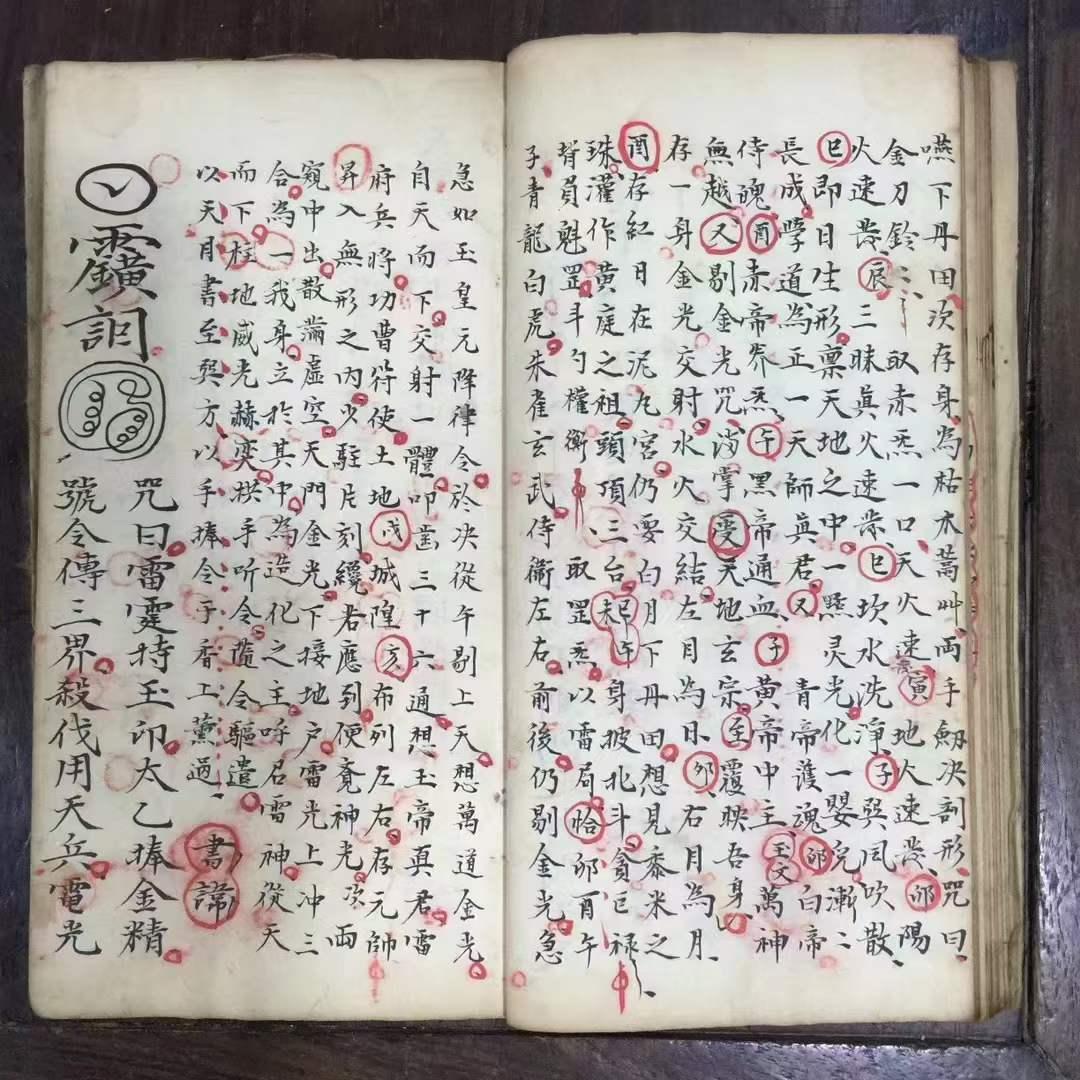 嚥下丹田次存身為枯木蒿艸兩手劔决剖形咒曰
金刀鈴〻取赤炁一口天火速发寅地火速发卯陽
火速发辰三昧真火速发巳坎水洗淨子巽風吹散
巳即日生形禀天地之中一點灵光化一嬰兒漸〻
長成學道為正一天師真君又青帝護魂卯白帝
侍魄酉赤帝养炁午黑帝通血子黃帝中主玉文萬神
無越又剔金光咒治掌天地玄宗至覆映吾身
存一身金光交射水火交結左月為日卯右月為月
酉存紅日在泥丸宮仍要白月下丹田想見黍米之
珠灌作黃庭之祖頭頂三台未巳午身披北斗貪巨祿
背員魁罡斗勺權衡取罡炁以雷局恰卯酉午
子青龍白虎朱雀玄武侍衞左右前後仍剔金光急
急如玉皇元降律令於决從午剔上天想萬道金光
自天而下交射一體叩齒三十六通想玉帝真君雷
府兵將功曹符使土地戌城隍亥布列左右存元帥
昇入無形之內少駐片刻纔若應到便竟神光次兩
窺中出散滿虛空天門金光下接地户雷光上冲三
合為一我身立於其中為造化之主呼召雷神從天
而下柱地威光赫奕拱手听令隨令驅遣
以天月書至契方以手捧令于香上薰過書諱
咒曰雷霆持玉印太乙捧金精
號令傳三界殺伐用天兵電光